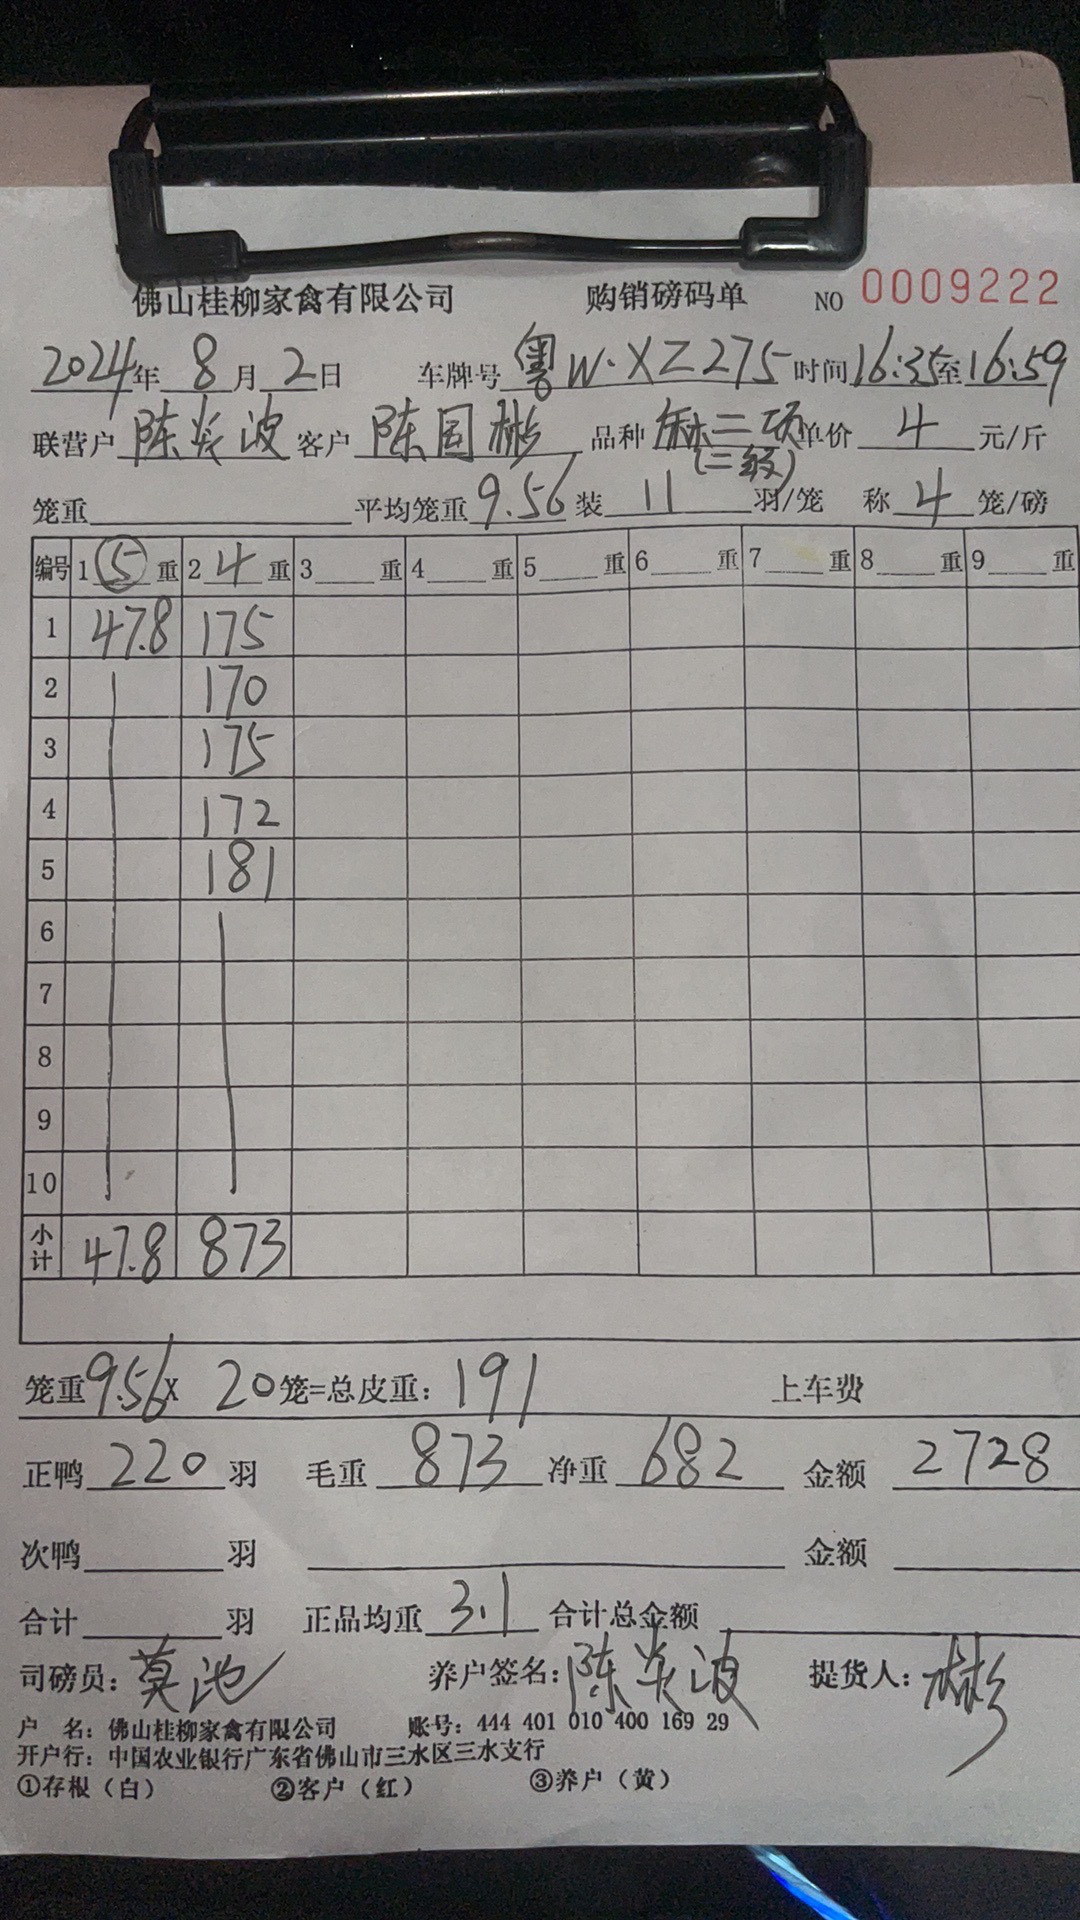 佛山桂柳家禽有限公司 购销磅码单 NO 0009222
2024年8月2日 车牌号粤W·XZ275时间16:35至16:59
联营户陈炎波客户陈国彬 品种麻二项单价4元/斤
(二级)
笼重 平均笼重9.56装11羽/笼 称4笼/磅
编号 1⑤重 2 4重 3重 4重 5重 6重 7重 8重 9重
1 47.8 175
2 170
3 175
4 172
5 181
6
7
8
9
10
小计 47.8 873
笼重9.56X 20笼=总皮重: 191 上车费
正鸭220羽 毛重873净重682 金额2728
次鸭羽 金额
合计羽 正品均重3.1 合计总金额
司磅员: 莫池 养户签名: 陈炎波 提货人: 彬
户 名: 佛山桂柳家禽有限公司 账号: 444 401 010 400 169 29
开户行: 中国农业银行广东省佛山市三水区三水支行
①存根（白） ②客户（红） ③养户（黄）